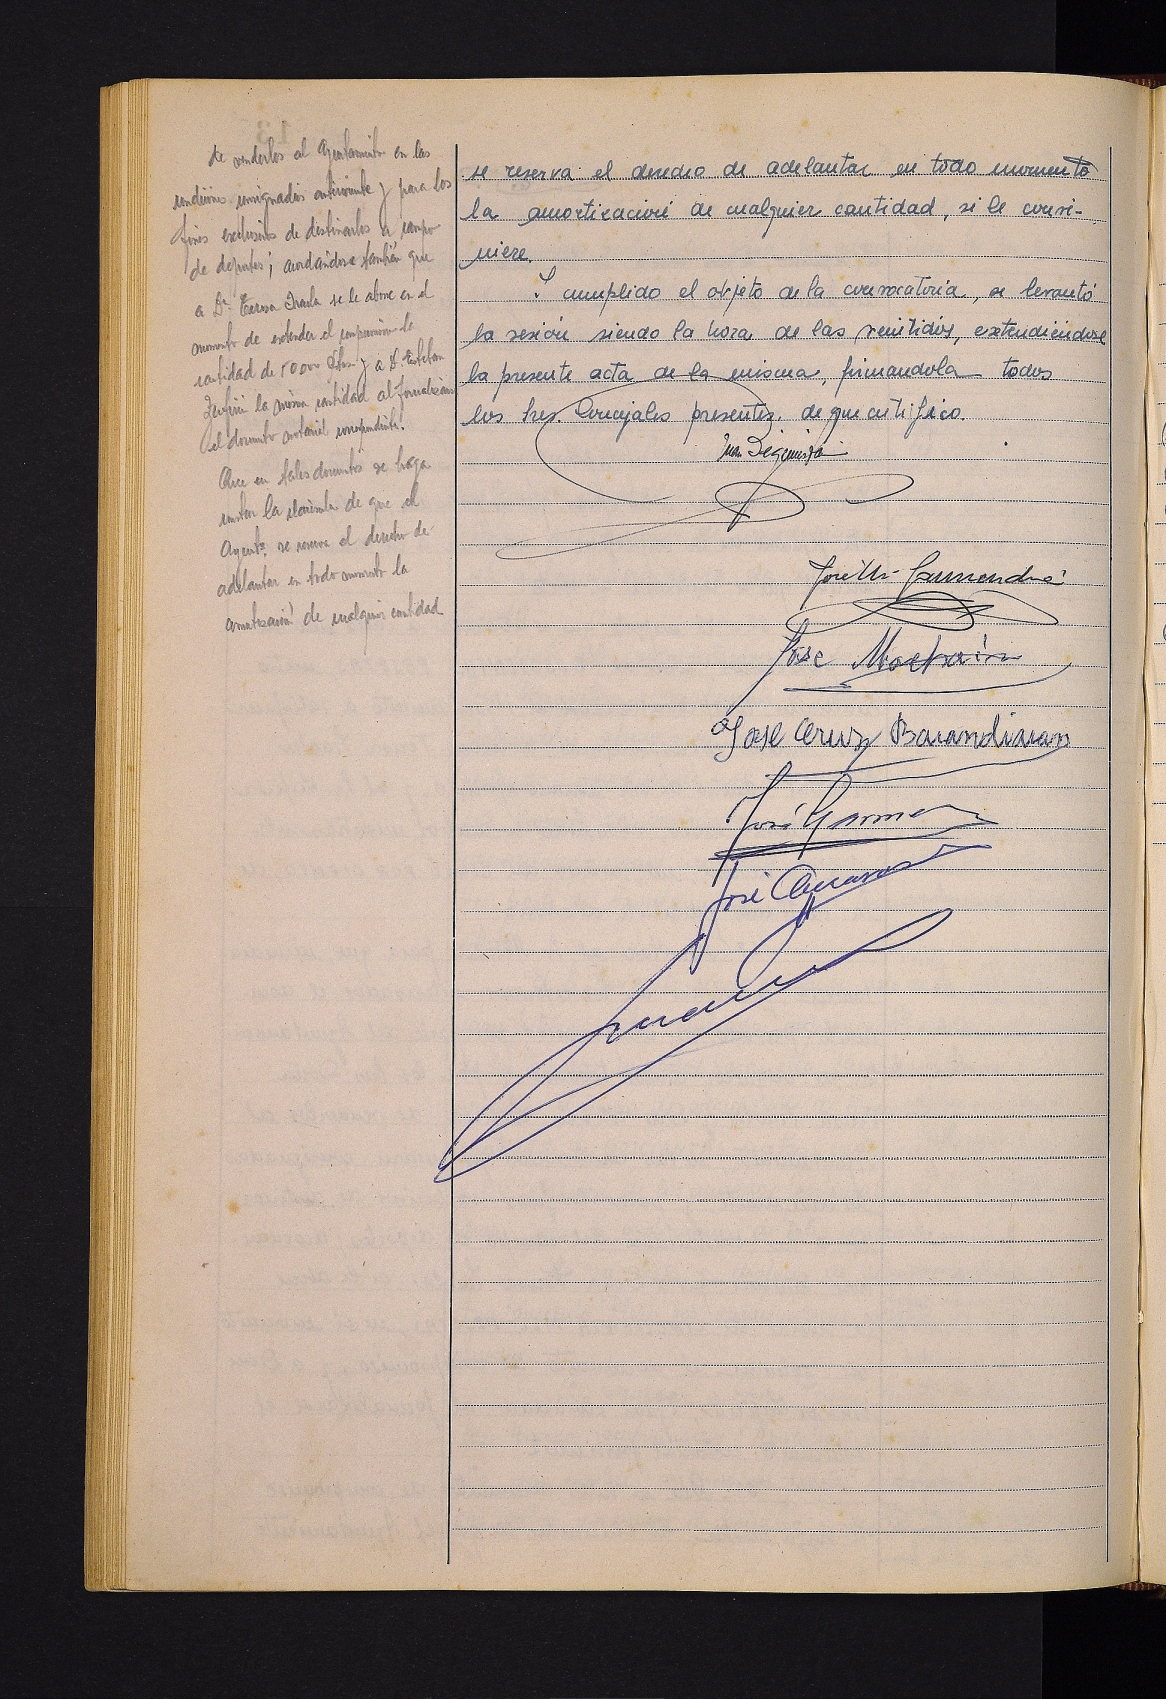 de venderlos al Ayuntamiento en las
condiciones consignadas anteriormente y para los
fines exclusivos de destinarlos a campo
de deportes; acordándose también que
a Dª Teresa Iraola se le abone en el
momento de extender el compromiso la
cantidad de 50.000 ptas. y a D. Esteban
la misma cantidad al formalizarse
el documento notarial correspondiente.
Que en tales documentos se haga
constar la de que el
Ayuntº. se reserva el derecho de
adelantar en todo momento la
amortización de cualquier cantidad
se reserva el derecho de adelantar en todo momento
la amortización de cualquier cantidad, si le convi-
niere.
Y cumplido el objeto de la convocatoria, se levantó
la sesión siendo la hora de las veintidós, extendiéndose
la presente acta de la misma, firmándola todos
los Sres. Concejales presentes, de que certifico.
José Mª Garmendia
José
José Cruz Barandiaran
José
José